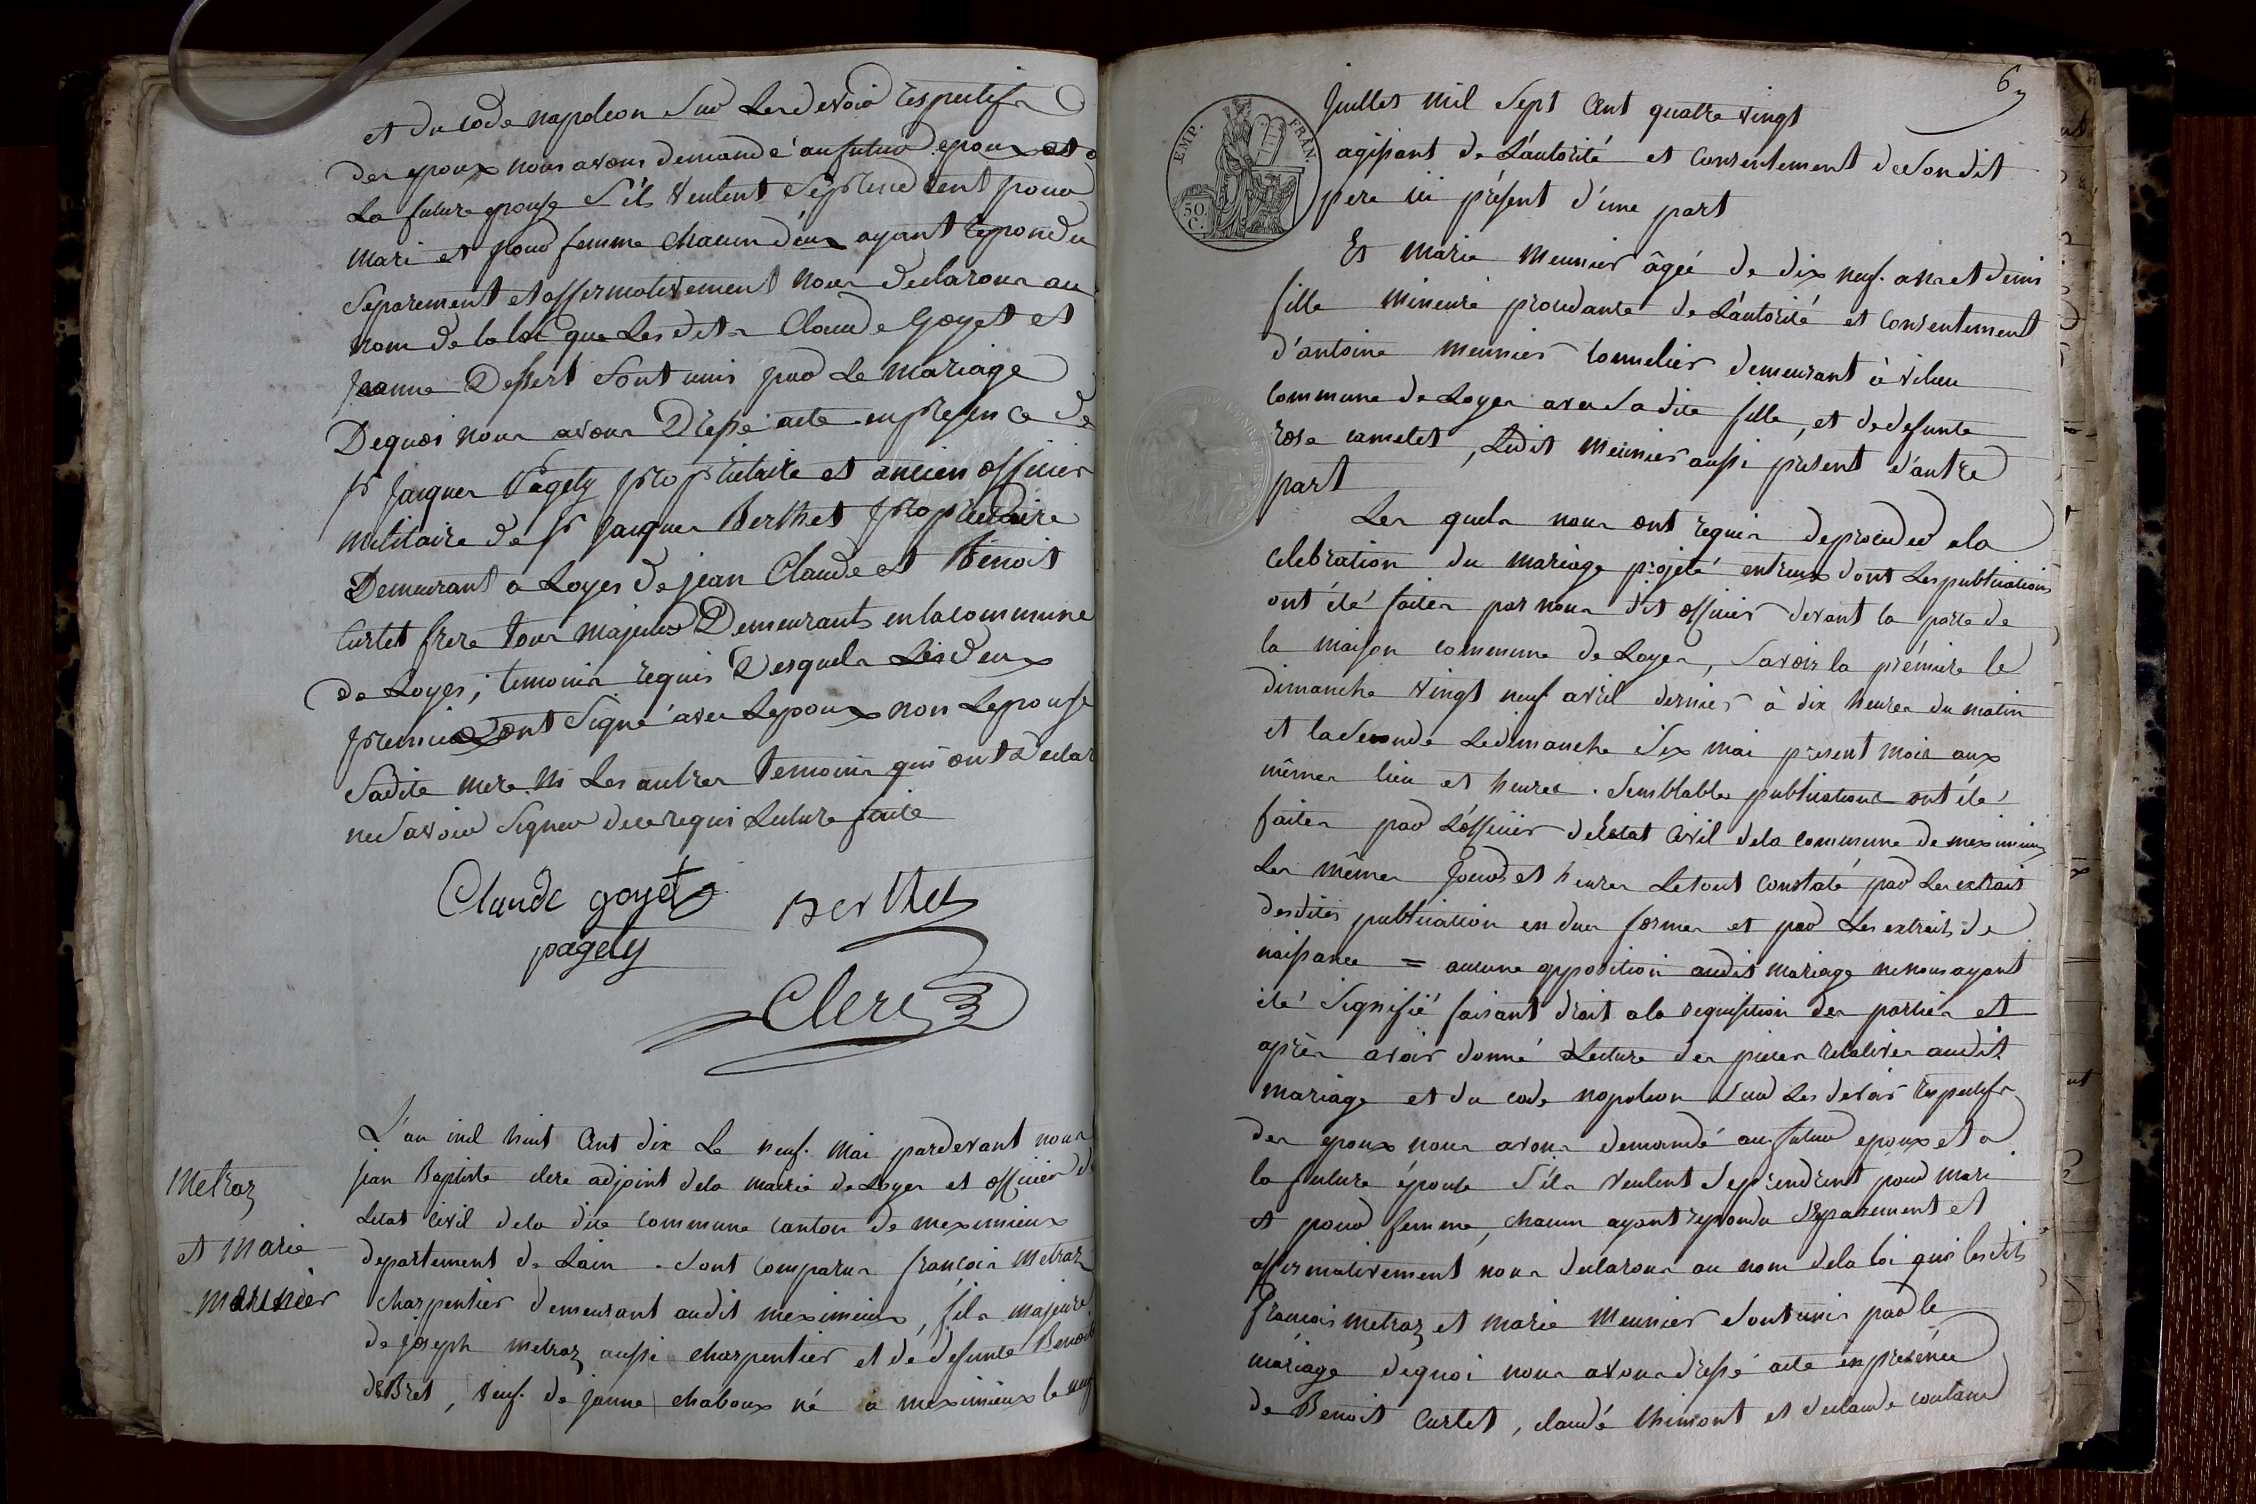 et du code napoleon Sur Les devoir respectifs
des epoux nous avons demandé au futur epoux et a
La future epouse S'ils veulent Se prendrent pour
mari et pour femme chacun d'eux ayant repondu
Separement et affirmativement nous declarons au
nom de la loi que Les dits Claude Goyet et
Jeanne Dessert Sont unis par Le mariage
Dequoi nous avons Dressé acte en presence de
Sr Jacques Pagely proprietaire et ancien officier
militaire de Sr Jacques Berthet proprietaire
Demeurant a Loyes de jean Claude et Benoit
Curtet frere tous majeurs Demeurants en la commune
de Loyes, temoins requis Desquels Les deux
premiers ont Signé avec Lepoux non Lepouse
Sadite mere ni Les autres temoins qui ont declar
ne Savoir Signer de ce requis Lecture faite
Claude goyet Berthet
pagely
Clerc
Metraz
et Marie
meunier
L'an mil huit Cent dix Le neuf mai pardevant nous
jean Baptiste clerc adjoint dela mairie de Loyes et officier de
Letat Civil dela dite commune canton de meximieux
departement de Lain . Sont comparus françois Metraz
charpentier demeurant audit meximieux, fils majeur
de joseph metraz aussi charpentier et de defunte Benoite
deBret, veuf de janne chaboux né à meximieux le neuf
EMP. FRAN.
50 C.
67
Juillet mil Sept Cent quatre vingt
agissant de L'autorité et Consentement de Son dit
pere ici présent d'une part
Et marie meunier âgée de dix neuf ans et demi
fille mineure procedante de L'autorité et consentement
d'antoine meunier tonnelier demeurant à vilieu
commune de Loyes avec Sa dite fille, et de defunte
rose camelet, Ledit meunier aussi present d'autre
part
Les quels nous ont requis de proceder a la
celebration du mariage projeté entreux dont Les publications
ont été faites par nous dit officier devant la porte de
la maison commune de Loyes, Savoir la prémiere le
dimanche vingt neuf avril dernier à dix heures du matin
et la Seconde Le dimanche Six mai present mois aux
mêmes lieu et heures . Semblables publications ont été
faites par L'officier de Letat Civil dela commune de meximieux
Les mêmes Jours et heures Le tout constaté par Les extrais
desdites publication en dues formes et par Les extraits de
naissance = aucune opposition audit mariage ne nous ayant
été Signifié faisant droit a la requisition des parties et
après avoir donné Lecture des pieces relatives audit
mariage et du code napoleon Sur Les devoir respectifs
des epoux nous avons demandé au futur epoux et a
la future épouse S'ils veulent Se prendrent pour mari
et pour femme, chacun ayant repondu Separement et
affirmativement nous declarons au nom dela loi que lesdits
françois metraz et marie meunier Sont unis par le
mariage dequoi nous avons dressé acte en presence
de Benoit Curtet, claude thimont et de claude coutaud